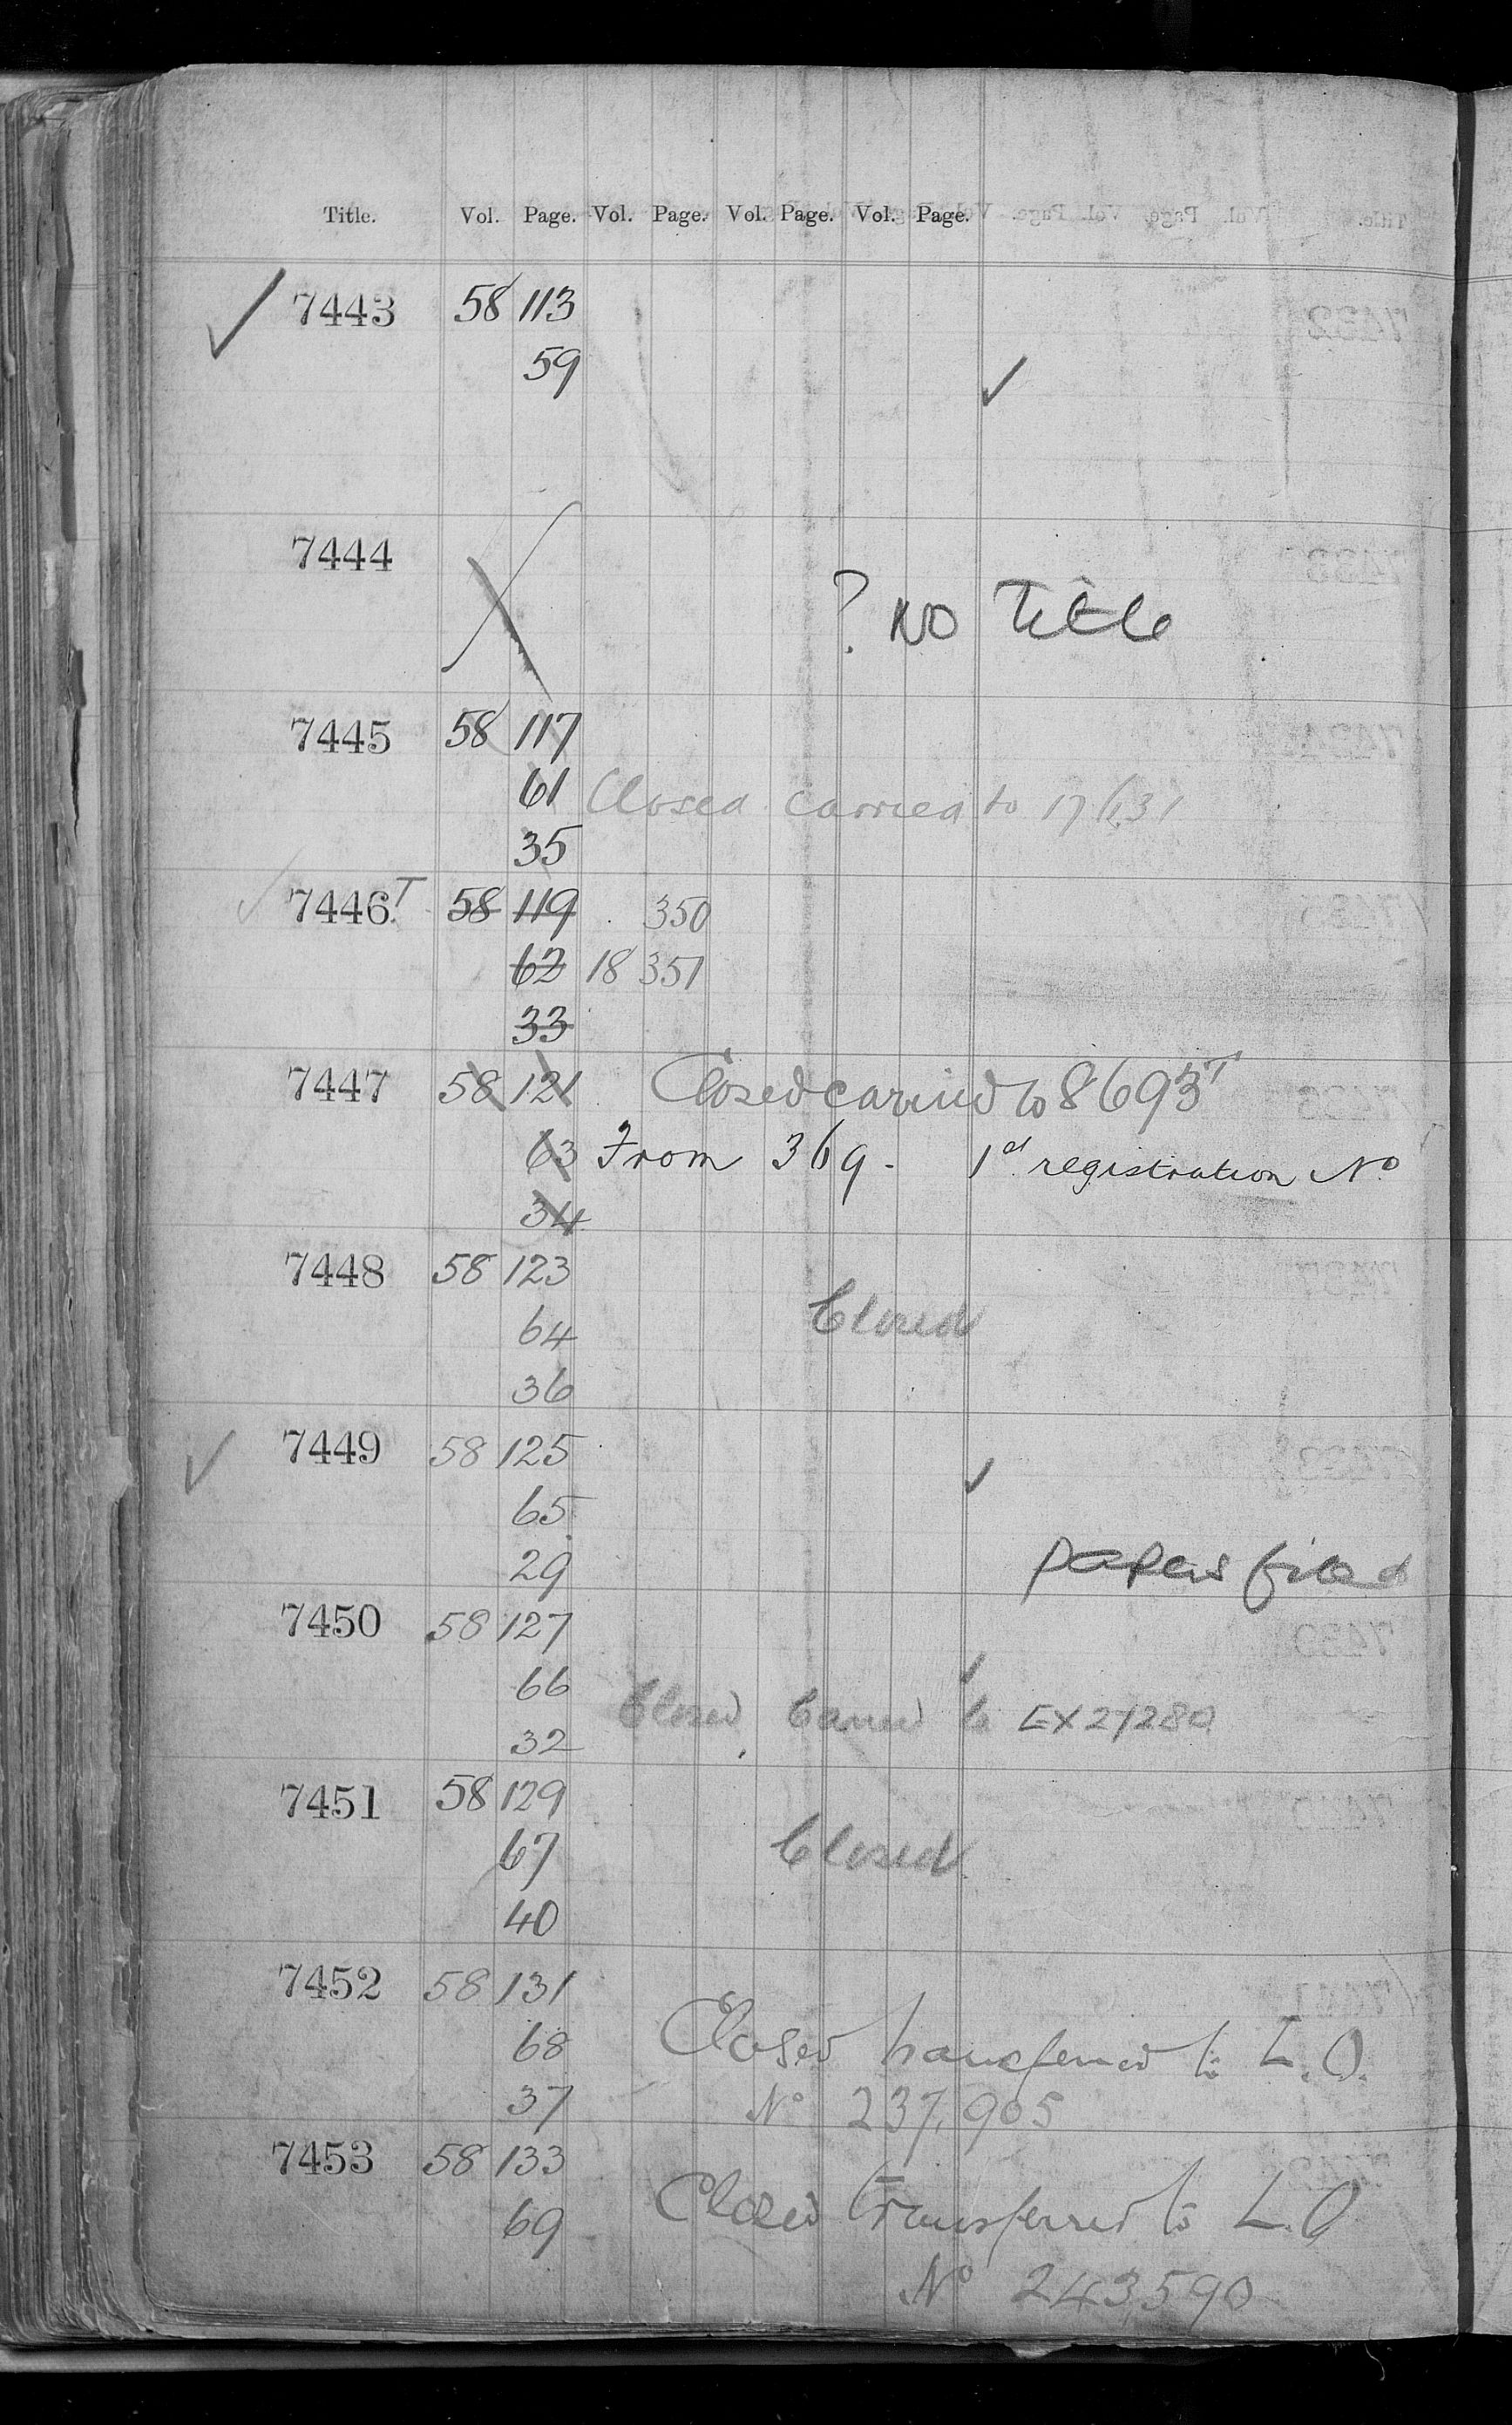 Title. Vol. Page. Vol. Page. Vol. Page. Vol. Page.
✓ 7443 58 113
59 ✓
7444
? NO Title
7445 58 117
61 Closed carried to 17631
35
✓ 7446T 58 119 350
62 18 351
33
7447 58 121 Closed carried to 8693T
63 From 369. 1st registration No
34
7448 58 123
64 Closed
36
✓ 7449 58 125 ✓
65
29 papers filed
7450 58 127
66 Closed, Carried to EX21280
32
7451 58 129
67 Closed
40
7452 58 131
68 Closed transferred to L.O.
37 No 237,905
7453 58 133
69 Closed Transferred to L.O
No 243590